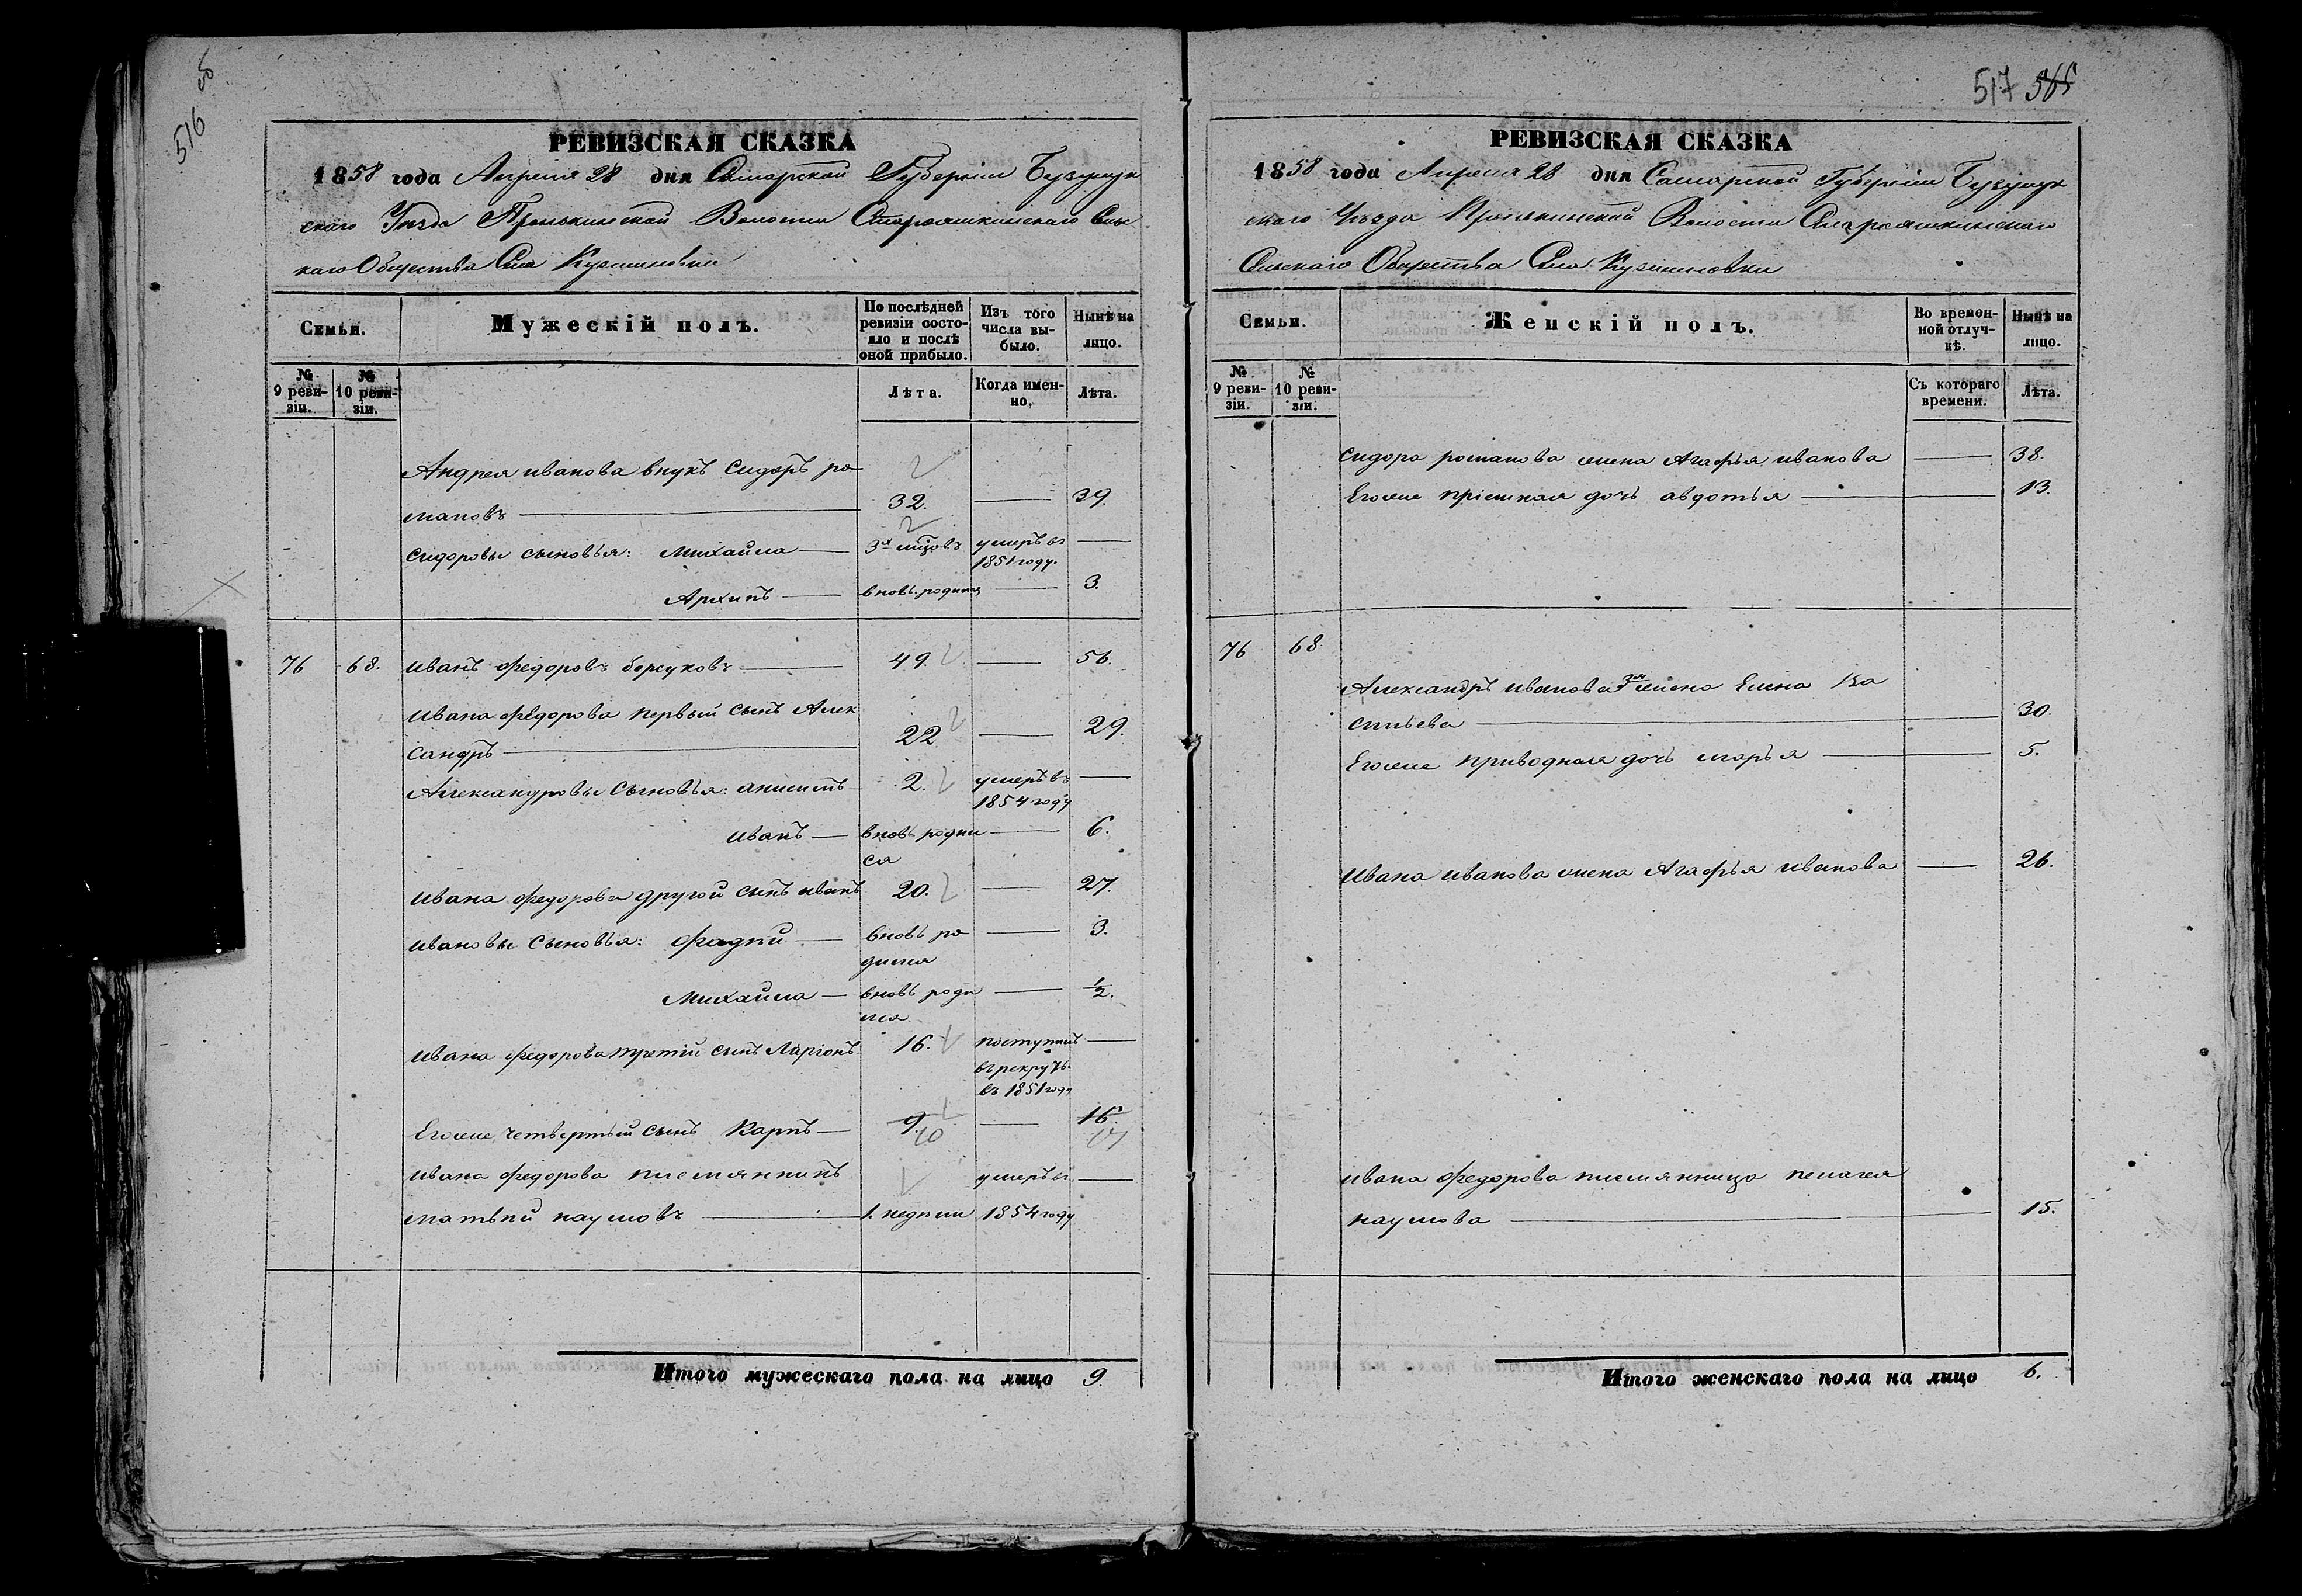 516
РЕВИЗСКАЯ СКАЗКА
1858 года Апреля 28 дня Самарской Губерніи Бузулук
скаго Уѣзда Пронькинской Волости Староашкинскаго Сельс
каго Общества Села Кузминовки
Семьи.
Мужескій полъ.
По послѣдней ревизіи состо-
яло и послѣ оной прибыло.
Изъ того числа вы-
было.
Нынѣ на лицо.
№ 9 реви-
зіи.
№ 10 реви-
зіи.
Лѣта.
Когда имен-
но.
Лѣта.
Андрея иванова внукъ Сидоръ ро
мановъ 32. 39.
Сидоровы сыновья: Михайла 3х мѣцовъ умеръ въ
1851 году.
Архипъ вновь родился 3.
76 68. Иванъ Федоровъ борсуковъ 49. 56.
Ивана Федорова первый сынъ Алек
сандръ 22 29.
Александровы Сыновья: анисимъ 2. умеръ въ
1854 году
иванъ вновь роди 6.
ся
Ивана Федорова другой сынъ иванъ 20. 27.
Ивановы Сыновья: Фадѣй вновь ро 3.
дился
Михайла вновь роди ½.
лся
Ивана Федорова третій сынъ Ларіонъ 16. поступилъ
въ рекруты
въ 1851 году
Егоже четвертый сынъ Карпъ 9. 16.
10 17
Ивана Федорова племянникъ умеръ въ
матвѣй наумовъ 1. недѣли 1854 году
Итого мужескаго пола на лицо 9.
517 565
РЕВИЗСКАЯ СКАЗКА
1858 года Апреля 28 дня Самарской Губерніи Бузулук
скаго Уѣзда Пронькинской Волости Староашкинскаго
Сельскаго Общества Села Кузминовки
Семьи.
Женскій полъ.
Во времен-
ной отлуч-
кѣ.
Нынѣ на лицо.
№ 9 реви-
зіи.
№ 10 реви-
зіи.
Съ котораго времени.
Лѣта.
Сидора романова жена Агафья иванова 38.
Егоже пріемная дочь авдотья 13.
76 68.
Александръ иванова 2я жена Елена Ва
сильева 30.
Егоже приводная дочь марья 5.
Ивана иванова жена Агафья иванова 26.
Ивана Федорова племянница пелагея
наумова 15.
Итого женскаго пола на лицо 6.